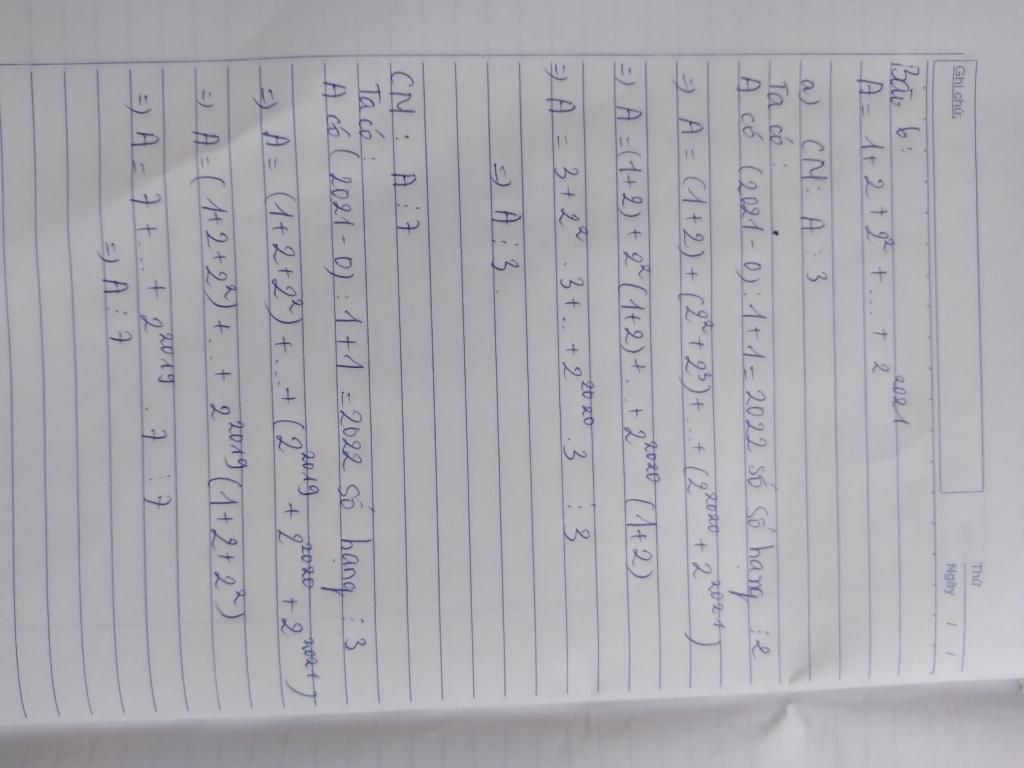 Ghi chú:
Thứ
Ngày / /
Bài 6:
A = 1 + 2 + 2² + ... + 2²⁰²¹
a) CM: A ⋮ 3
Ta có:
A có (2021 - 0) : 1 + 1 = 2022 số số hạng ⋮ 2
=) A = (1 + 2) + (2² + 2³) + ... + (2²⁰²⁰ + 2²⁰²¹)
=) A = (1 + 2) + 2² (1 + 2) + ... + 2²⁰²⁰ (1 + 2)
=) A = 3 + 2² . 3 + ... + 2²⁰²⁰ . 3 ⋮ 3
=) A ⋮ 3.
CM: A ⋮ 7
Ta có:
A có (2021 - 0) : 1 + 1 = 2022 số hạng ⋮ 3
=) A = (1 + 2 + 2²) + ... + (2²⁰¹⁹ + 2²⁰²⁰ + 2²⁰²¹)
=) A = (1 + 2 + 2²) + ... + 2²⁰¹⁹ (1 + 2 + 2²)
=) A = 7 + ... + 2²⁰¹⁹ . 7 ⋮ 7
=) A ⋮ 7